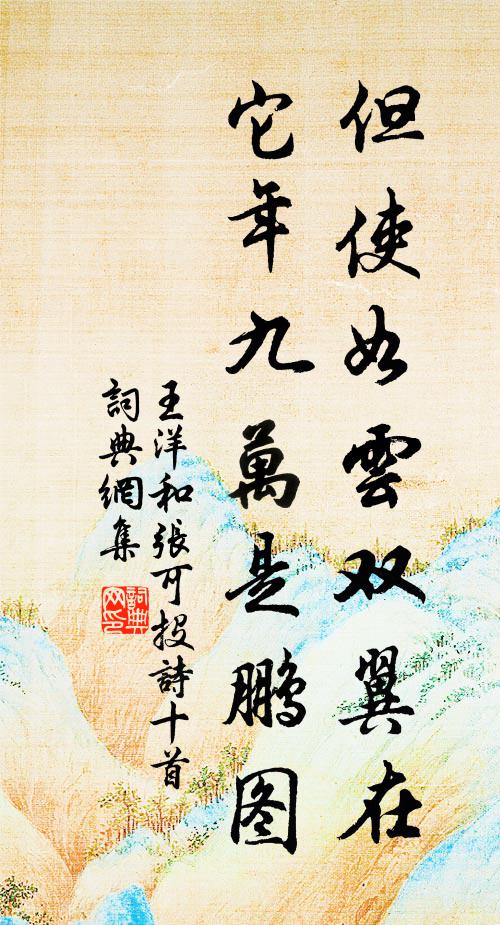 但使如雲双翼在
它年九萬是鵬图
王洋和張可投詩十首
詞典網集
詞典
网印